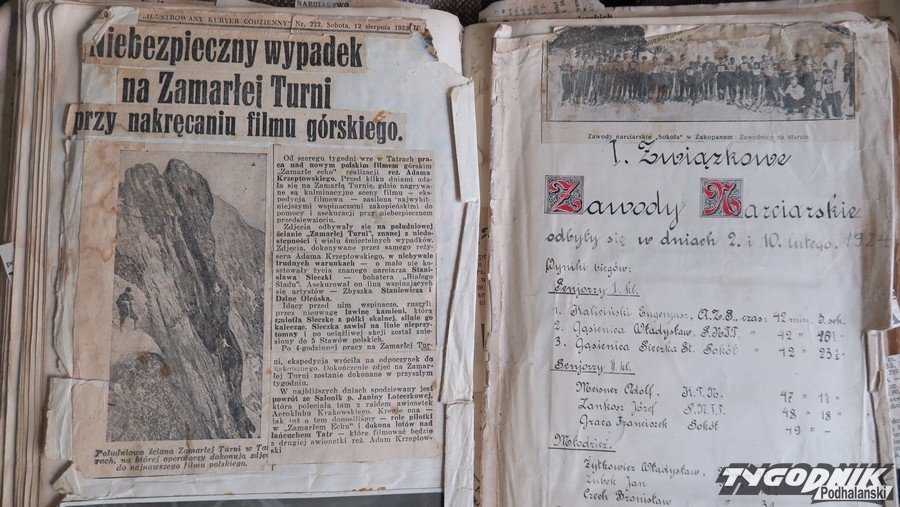 NARCIARSTWO
„ILUSTROWANY KURYER CODZIENNY" Nr. 222. Sobota, 12 sierpnia 1933
Niebezpieczny wypadek
na Zamarłej Turni
przy nakręcaniu filmu górskiego.
Od szeregu tygodni wre w Tatrach pra-
ca nad nowym polskim filmem górskim
„Zamarłe echo" realizacji reż. Adama
Krzeptowskiego. Przed kilku dniami uda-
ła się na Zamarłą Turnię, gdzie nagrywa-
ne są kulminacyjne sceny filmu — eks-
pedycja filmowa — zasilona najwybit-
niejszymi wspinaczami zakopiańskimi do
pomocy i asekuracji przy niebezpiecznem
przedsięwzięciu.
Zdjęcia odbywały się na południowej
ścianie „Zamarłej Turni", znanej z niedo-
stępności i wielu śmiertelnych wypadków.
Zdjęcia, dokonywane przez samego reżyse-
ra Adama Krzeptowskiego, w niebywale
trudnych warunkach — o mało nie ko-
sztowały życia znanego narciarza Stani-
sława Sieczki — bohatera „Białego
Śladu". Asekurował on liną wspinających
się artystów — Zbyszka Staniewicza i
Dzinę Oleńską.
Idący przed nim wspinacze, ruszyli
przez nieuwagę lawinę kamieni, która
zmiotła Sieczkę z półki skalnej, silnie go
kalecząc. Sieczka zawisł na linie nieprzy-
tomny i po uciążliwej akcji został znie-
siony do 5 Stawów polskich.
Po 4-godzinnej pracy na Zamarłej Tur-
ni, ekspedycja wróciła na odpoczynek do
Zakopanego. Dokończenie zdjęć na Zamar-
łej Turni zostanie dokonane w przyszłym
tygodniu.
W najbliższych dniach spodziewany jest
powrót ze Salonik p. Janiny Loteczkowej,
która poleciała tam z raidem awionetek
Aeroklubu Krakowskiego. Kreuje ona —
jak już o tem donosiliśmy — role pilotki
w „Zamarłem Echu" i dokona lotów nad
łańcuchem Tatr — które filmować będzie
z drugiej awionetki reż. Adam Krzeptowski
Południowa ściana Zamarłej Turni w Ta-
rach, na której operatorzy dokonują zdjęć
do najnowszego filmu polskiego.
Zawody narciarskie „Sokoła" w Zakopanem: Zawodnicy na starcie.
I. Związkowe
Zawody Narciarskie
odbyły się w dniach 2. i 10. lutego. 1924
Wyniki biegów:
Senjorzy I. kl.
1. Kaliciński Eugenjusz, A.Z.S. czas: 42 min. 3. sek.
2. Gąsienica Władysław, S.N.T.T. " 42 "
3. Gąsienica Sieczka St. Sokół " 42 " 23½ "
Senjorzy II. kl.
Meisner Adolf. K.T.N. 47 " 14 "
Zankosz Józef S.N.T.T. 48 " 18 "
Graca Franciszek Sokół 49 " — "
Młodzież.
Żytkowicz Władysław,
Zubek Jan
Czech Bronisław
TYGODNIK
Podhalański